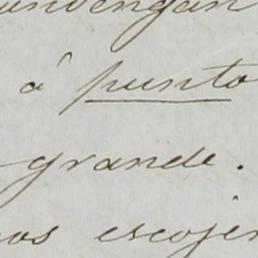 convengan
á punto
grande.
nos escojer